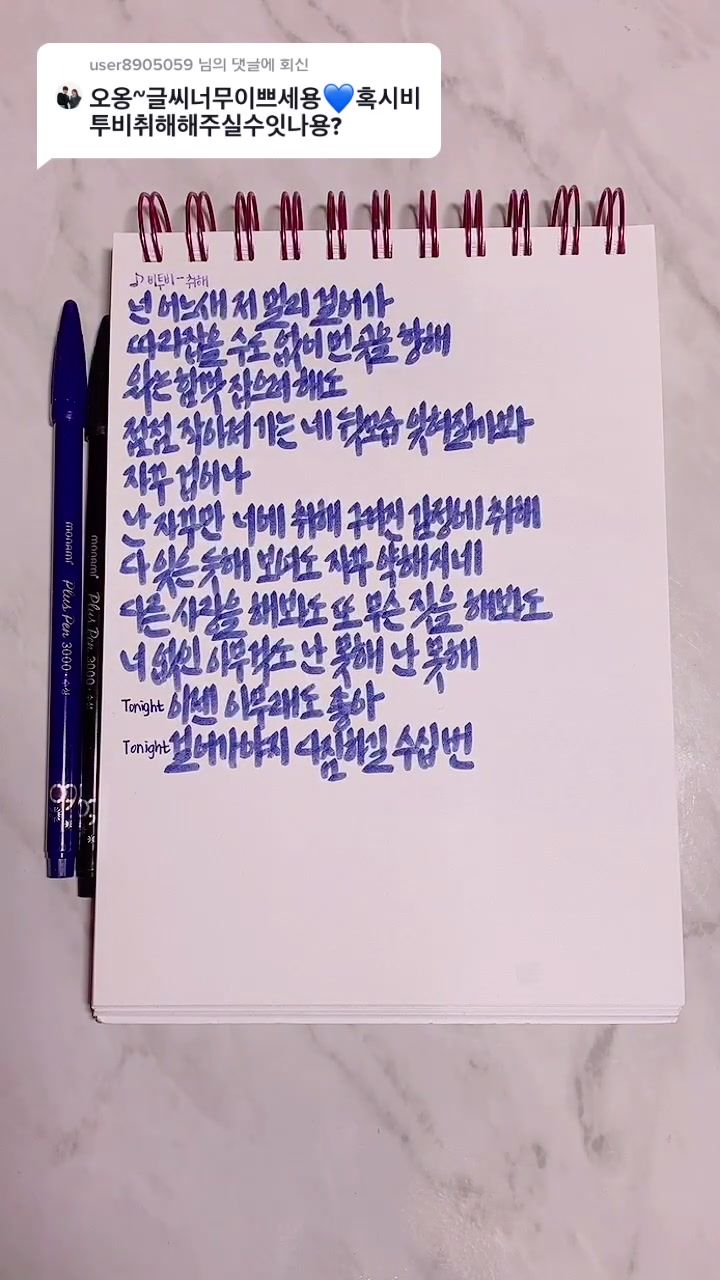 user8905059 님의 댓글에 회신
오옹~글씨너무이쁘세용💙혹시비
투비취해해주실수잇나용?
♪ 비투비-취해
넌 어느새 저 멀리 걸어가
따라잡을 수도 없이 먼 곳을 향해
있는 힘껏 잡으려 해도
점점 작아져가는 네 뒷모습 잊혀질까봐
자꾸 겁이나
난 자꾸만 너에 취해 구겨진 감정에 취해
다 잊은 듯해 보여도 자꾸 약해지네
다른 사랑을 해봐도 또 무슨 짓을 해봐도
너 없인 아무것도 난 못해 난 못해
Tonight 이젠 아무래도 좋아
Tonight 걸어가야지 다짐하길 수십번
monami Plus Pen 3000·수성
monami Plus Pen 3000·수성